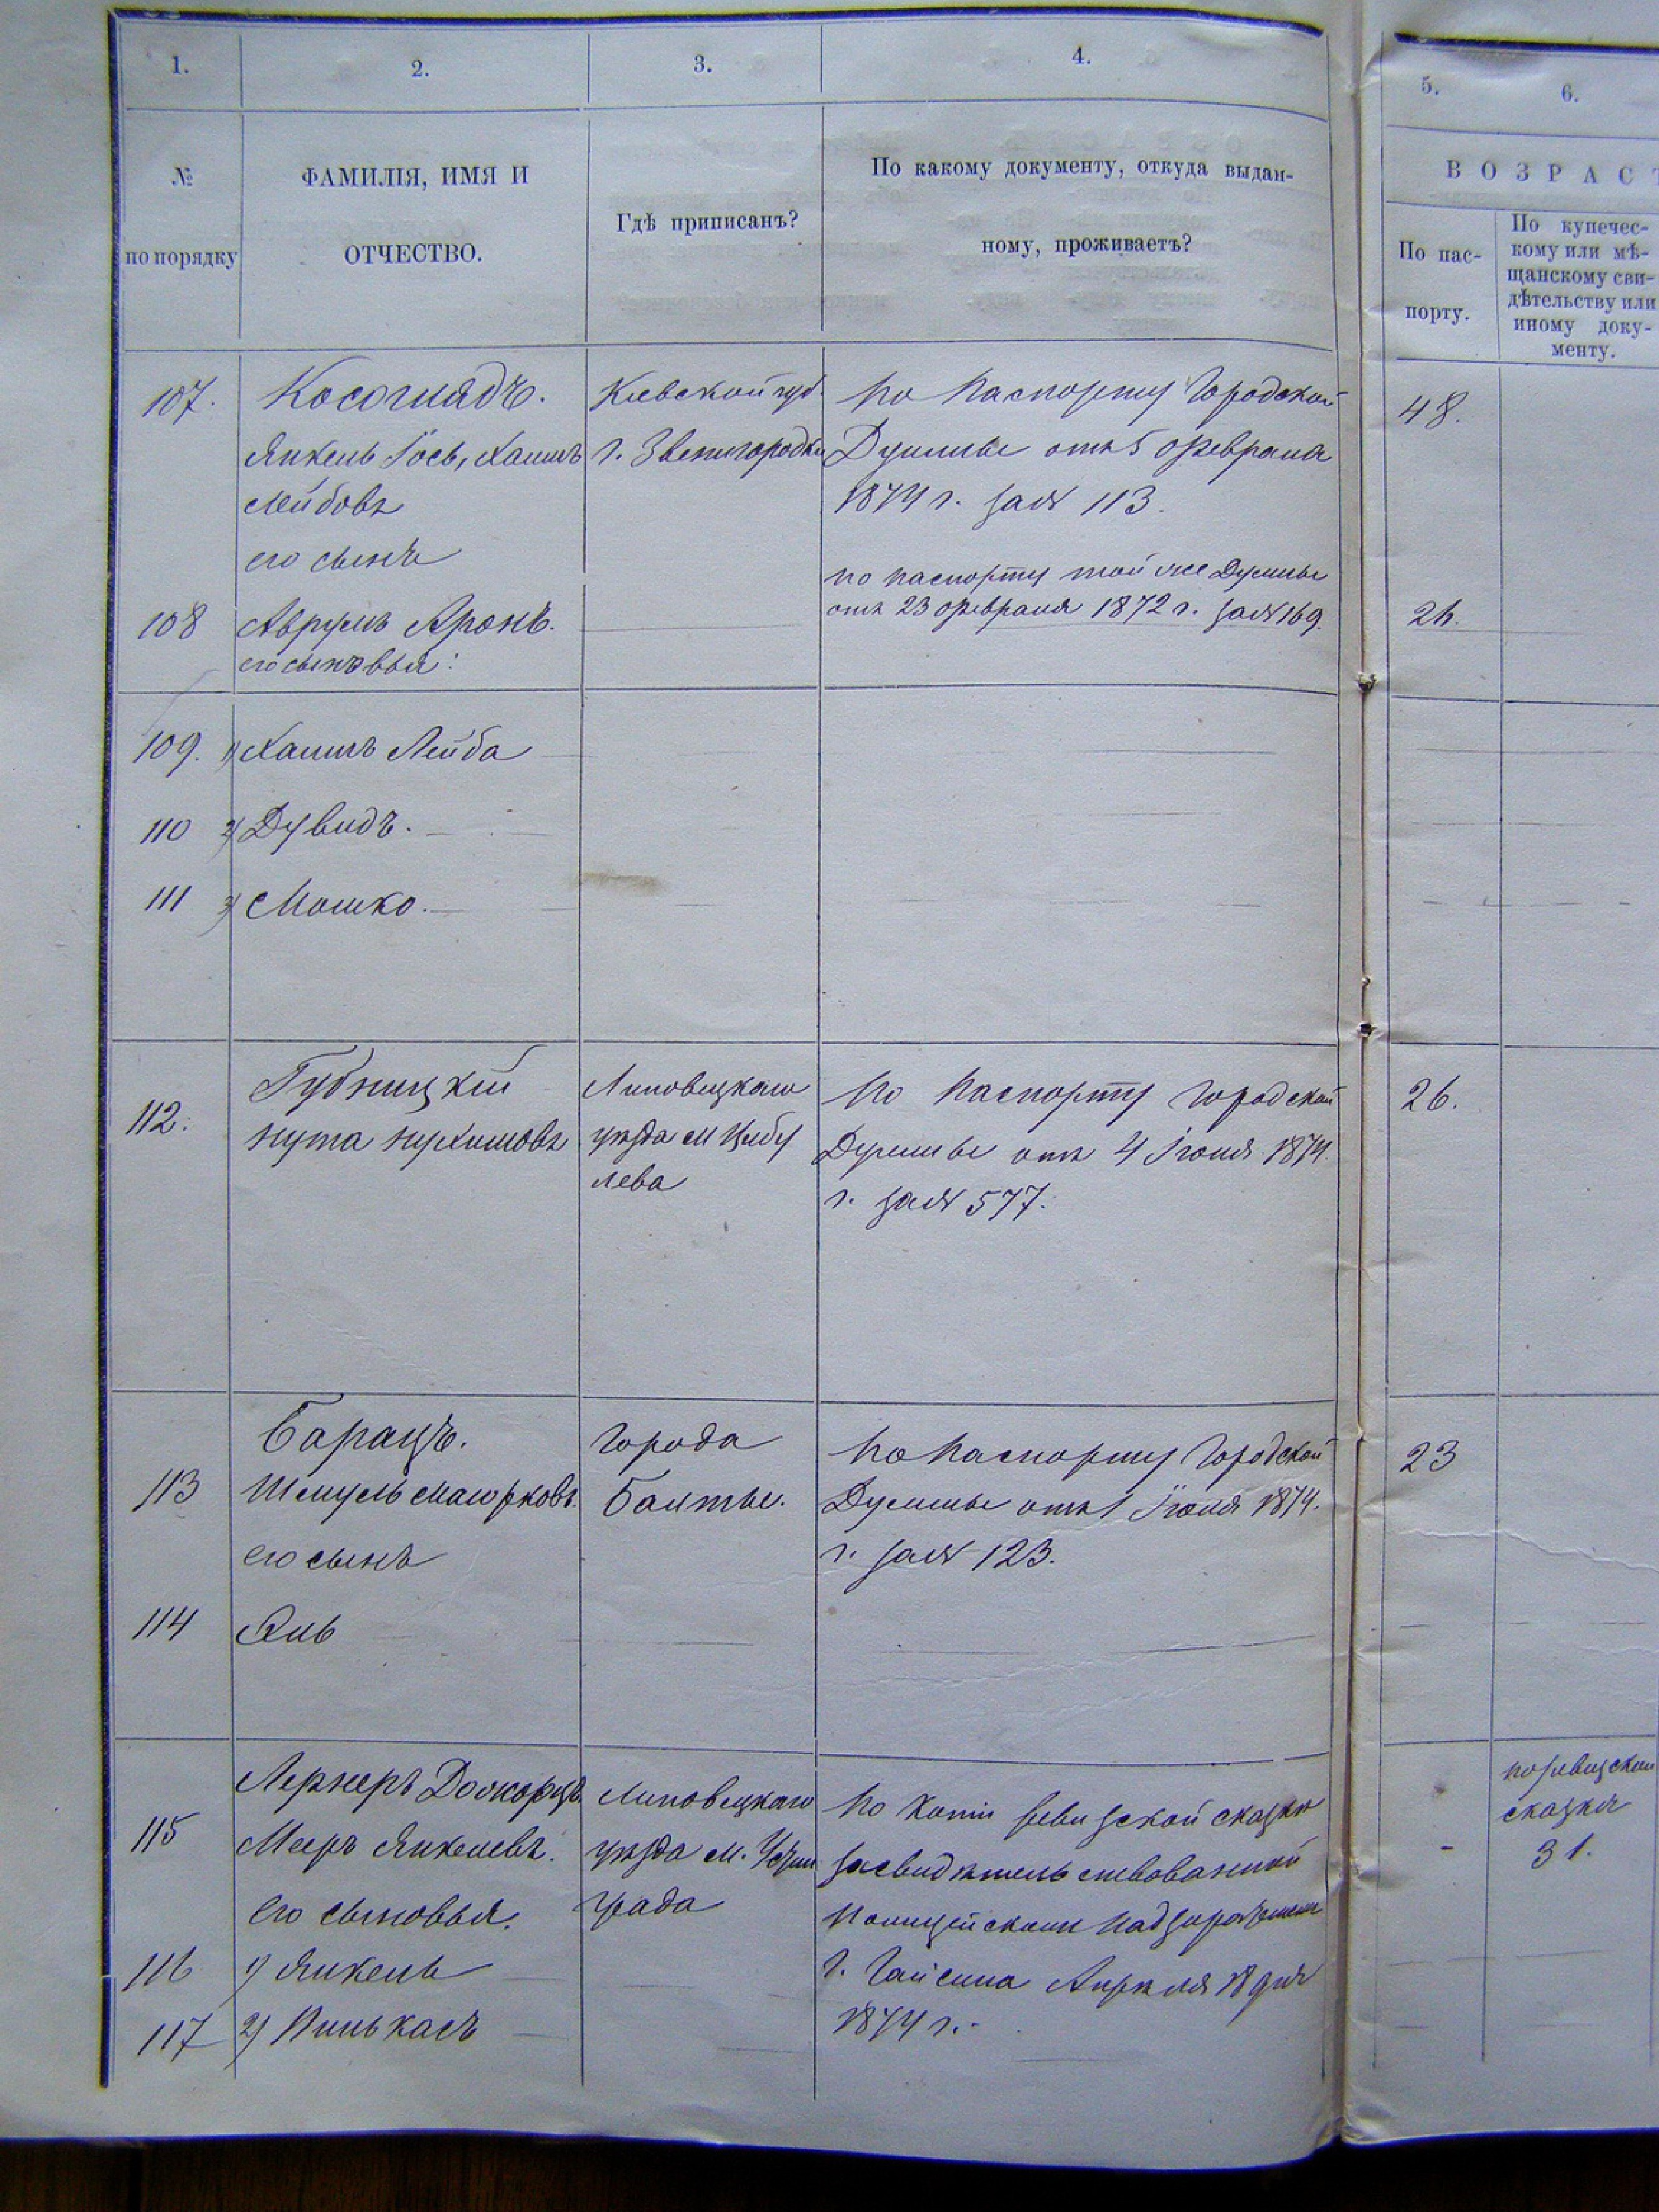 1.
2.
3.
4.
5.
6.
№
по порядку
ФАМИЛІЯ, ИМЯ И
ОТЧЕСТВО.
Гдѣ приписанъ?
По какому документу, откуда выдан-
ному, проживаетъ?
ВОЗРАСТ
По пас-
порту.
По купечес-
кому или мѣ-
щанскому сви-
дѣтельству или
иному доку-
менту.
107.
Косоглядъ.
Янкель Іось, Хаимъ
Лейбовъ
его сынъ
Кіевской губ.
г. Звенигородки
По паспорту Городской
Думы отъ 5 Февраля
1874 г. за № 113.
48.
108
Аврумъ Аронъ.
его сыновья:
по паспорту той же Думы
отъ 23 февраля 1872 г. за № 169.
109.
1) Хаимъ Лейба
110
2) Дувидъ.
111
3) Мошко.
112.
Губницкій
Нута Нухимовъ
Липовецкаго
уѣзда м Цыбу
лева
По паспорту городской
Думы отъ 4 Іюня 1874.
г. за № 577.
26.
113
Барацъ.
Шмуль Маіорковъ.
его сынъ
города
Балты.
По паспорту Городской
Думы отъ 1 Іюня 1874.
г. за № 123.
23
114
115
Лернеръ
Мееръ Янкелевъ.
Его сыновья.
Липовецкаго
уѣзда м.
града
По копіи ревизской сказки
засвидѣтельствованной
Полицейскимъ надзирателемъ
г. Гайсина Апрѣля 18 дня
1874 г.
по ревизской
сказкѣ
31.
116
1) Янкель
117
2) Пинькасъ